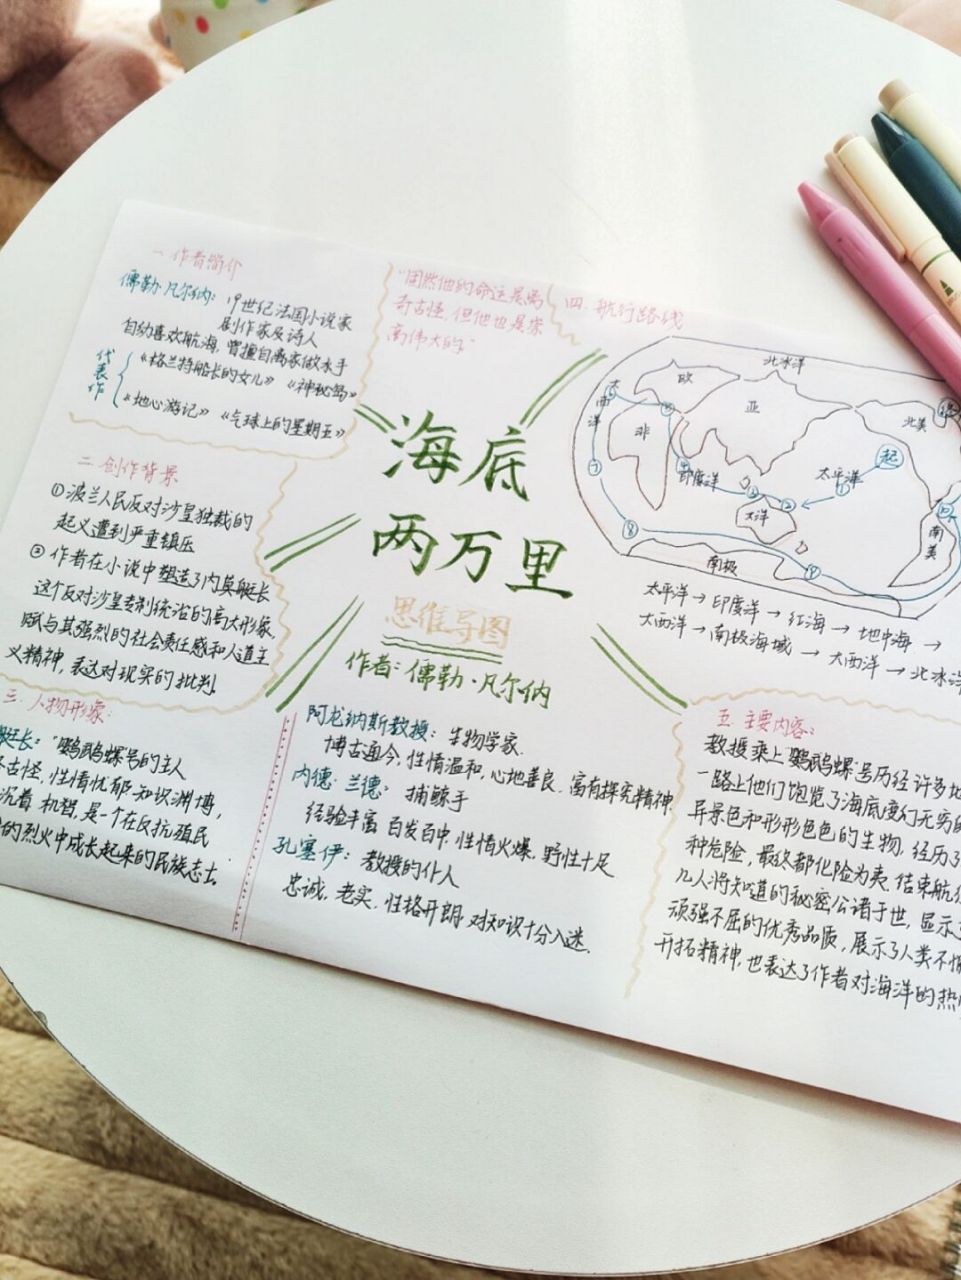 一 作者简介
儒勒·凡尔纳：19世纪法国小说家
剧作家及诗人
自幼喜欢航海，曾擅自离家做水手
代表作
《格兰特船长的女儿》《神秘岛》
《地心游记》《气球上的星期五》
二 创作背景
①波兰人民反对沙皇独裁的
起义遭到严重镇压
②作者在小说中塑造了内莫艇长
这个反对沙皇专制统治的高大形象，
赋与其强烈的社会责任感和人道主
义精神，表达对现实的批判。
三 人物形象：
艇长："鹦鹉螺号的主人
古怪，性情忧郁·知识渊博，
沉着 机智，是一个在反抗殖民
的烈火中成长起来的民族志士
"固然他的命运是离
奇古怪，但他也是崇
高伟大的"
海底
两万里
思维导图
作者：儒勒·凡尔纳
阿龙纳斯教授：生物学家
博古通今，性情温和，心地善良，富有探究精神
内德·兰德：捕鲸手
经验丰富 百发百中 性情火爆 野性十足
孔塞伊：教授的仆人
忠诚，老实，性格开朗 对知识十分入迷
四 航行路线
北冰洋
欧
亚
北美
非
印度洋
太平洋
起
大洋
南美
南极
太平洋→印度洋→红海→地中海→
大西洋→南极海域→大西洋→北冰洋
五 主要内容：
教授乘上"鹦鹉螺"号历经许多
一路上他们饱览了海底变幻无穷的
异景色和形形色色的生物，经历了
种危险，最终都化险为夷，结束航
几人将知道的秘密公诸于世，显示
顽强不屈的优秀品质，展示了人类不
开拓精神，也表达了作者对海洋的热